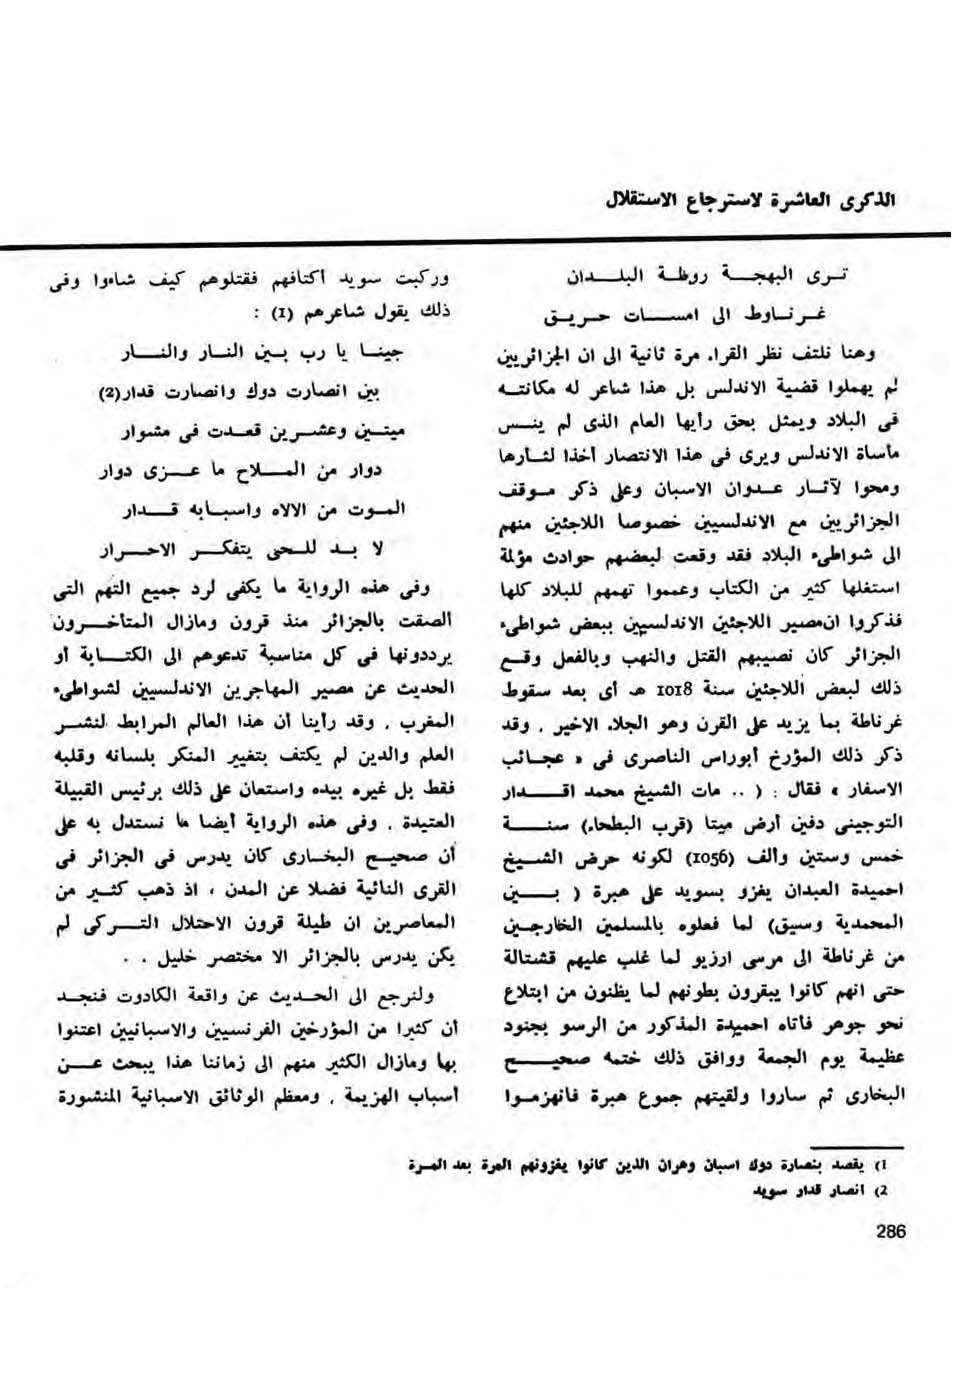 الذكرى العاشرة لاسترجاع الاستقلال
تـرى البهجــة روظـة البلــدان
غـرنـاوط الى امســات حـريـق
وهنا نلتف نظر القراء مرة ثانية الى ان الجزائريين
لم يهملوا قضية الاندلس بل هذا شاعر له مكانتـه
فى البلاد ويمثل بحق رأيها العام الذى لم ينـس
مأساة الاندلس ويرى فى هذا الانتصار أخذا لثـأرها
ومحوا لآثـار عـدوان الاسبان وعلى ذكر مـوقف
الجزائريين مع الاندلسيين خصوصا اللاجئين منهم
الى شواطىء البلاد فقد وقعت لبعضهم حوادث مؤلمة
استغلها كثير من الكتاب وعمموا تهمهم للبلاد كلها
فذكروا ان مصير اللاجئين الاندلسيين ببعض شواطىء
الجزائر كان نصيبهم القتل والنهب وبالفعل وقـع
ذلك لبعض اللاجئين سنة 1018 هـ أى بعد سقوط
غرناطة بما يزيد على القرن وهو الجلاء الاخير . وقد
ذكر ذلك المؤرخ أبوراس الناصرى فى « عجـائب
الاسفار » فقال : ( .. مات الشيخ محمد اقــدار
التوجينى دفين أرض ميتا (قرب البطحاء) سنـــة
خمس وستين وألف (1056) لكونه حرض الشـيخ
احميدة العبدان يغزو بسويد على هبرة ( بــين
المحمدية وسيق) لما فعلوه بالمسلمين الخارجـين
من غرناطة الى مرسى ارزيو لما غلب عليهم قشتالة
حتى انهم كانوا يبقرون بطونهم لما يظنون من ابتلاع
نحو جوهر فأتاه احميدة المذكور من الرسو بجنود
عظيمة يوم الجمعة ووافق ذلك ختمه صحيــح
البخارى ثم ساروا ولقيتهم جموع هبرة فانهزمـوا
وركبت سويد أكتافهم فقتلوهم كيف شاءوا وفى
ذلك يقول شاعرهم (1) :
جينـا يا رب بـين النـار والنــار
بين انصارت دوك وانصارت قدار(2)
ميتـين وعشـرين قعـدت فى مشوار
دوار من المــلاح ما عــزى دوار
المـوت من الالاه واسبـابه قــدار
لا بــد للـحى يتفكــر الاحــرار
وفى هذه الرواية ما يكفى لرد جميع التهم التى
الصقت بالجزائر منذ قرون ومازال المتأخــرون
يرددونها فى كل مناسبة تدعوهم الى الكتــابة أو
الحديث عن مصير المهاجرين الاندلسيين لشواطىء
المغرب . وقد رأينا أن هذا العالم المرابط لنشــر
العلم والدين لم يكتف بتغيير المنكر بلسانه وقلبه
فقط بل غيره بيده واستعان على ذلك برئيس القبيلة
العتيدة . وفى هذه الرواية أيضا ما نستدل به على
أن صحيـح البخـارى كان يدرس فى الجزائر فى
القرى النائية فضلا عن المدن ، اذ ذهب كثـير من
المعاصرين ان طيلة قرون الاحتلال التــركى لم
يكن يدرس بالجزائر الا مختصر خليل . .
ولنرجع الى الحـديث عن واقعة الكادوت فنجـد
أن كثيرا من المؤرخين الفرنسيين والاسبانيين اعتنوا
بها ومازال الكثير منهم الى زماننا هذا يبحث عــن
أسباب الهزيمة . ومعظم الوثائق الاسبانية المنشورة
1) يقصد بنصارة دوك اسبان وهران الذين كانوا يغزونهم المرة بعد المـرة
2) انصار قدار سويد
286